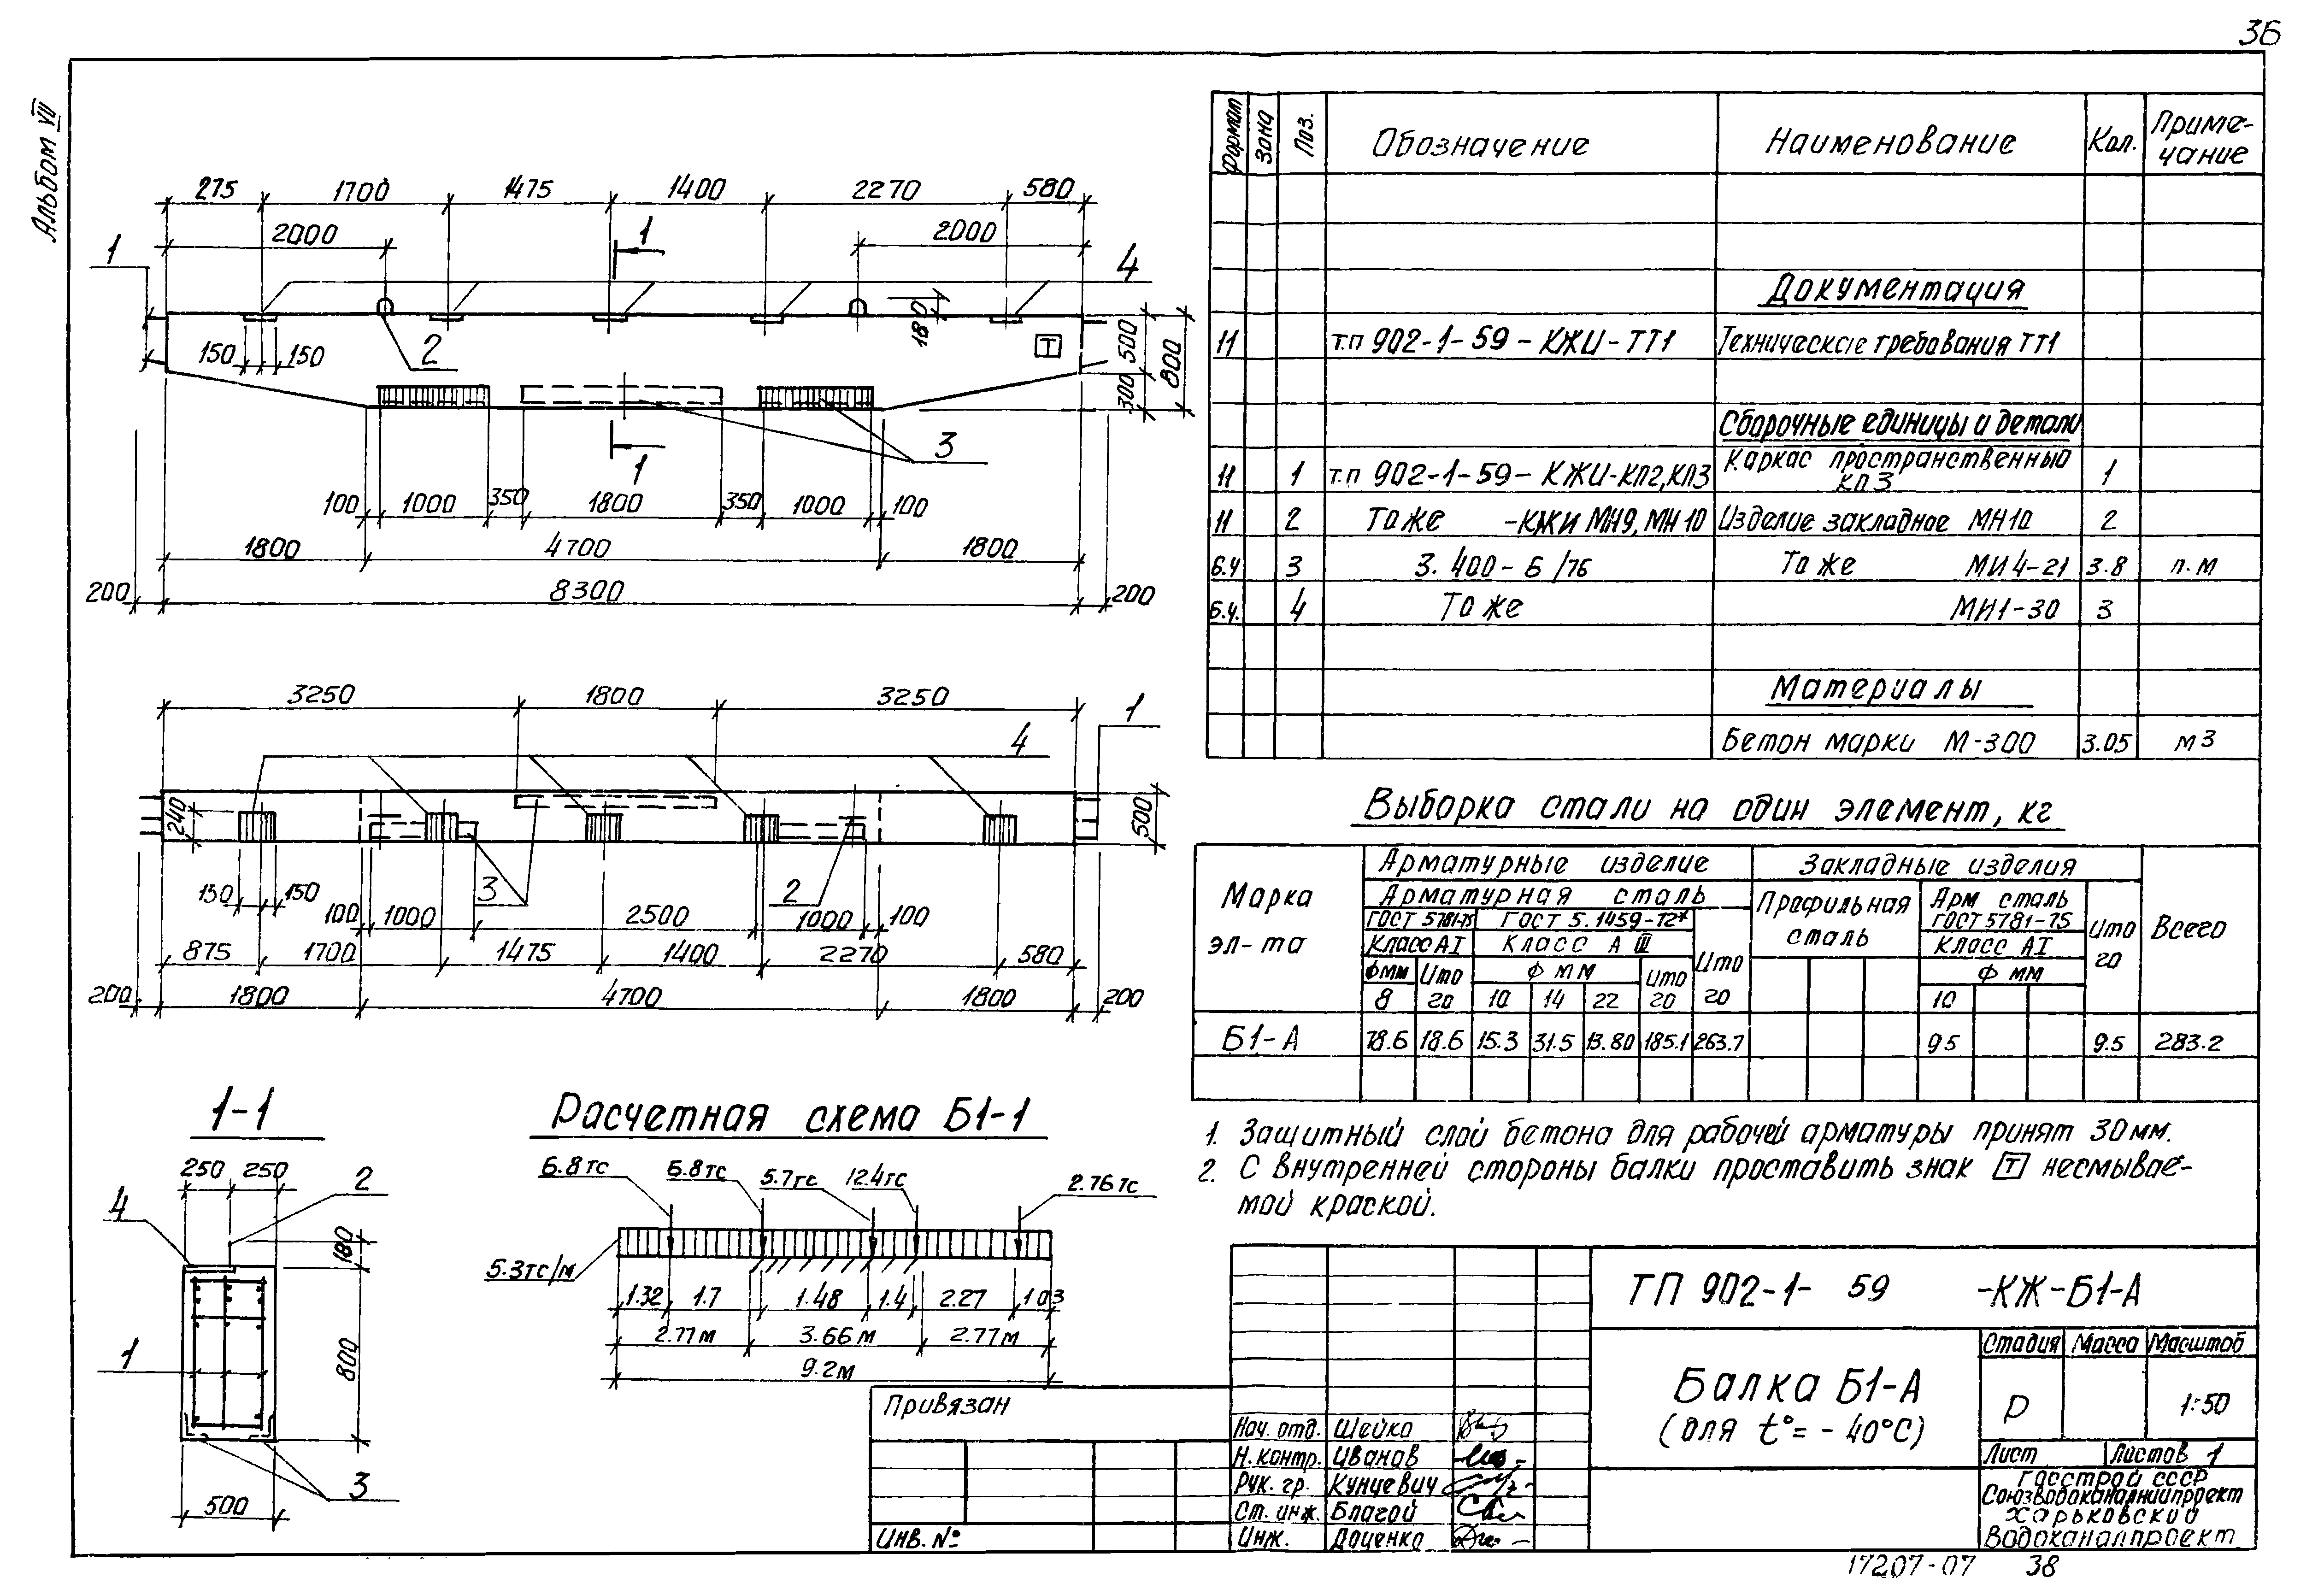 36
Альбом VII
275 1700 1475 1400 2270 580
2000 2000
1 1 4
180
2
150 150
Т
500 300 800
3
1
100 1000 350 1800 350 1000 100
1800 4700 1800
200 8300 200
3250 1800 3250
1
4
240 500
150 150 3 2
100 1000 2500 1000 100
875 1700 1475 1400 2270 580
200 1800 4700 1800 200
1-1
250 250 2
4
180
800
1
3
500
Расчетная схема Б1-1
6.8тс 6.8тс 5.7тс 12.4тс 2.76тс
5.3тс/м
1.32 1.7 1.48 1.4 2.27 1.03
2.77м 3.66м 2.77м
9.2м
Формат Зона Поз. Обозначение Наименование Кол. Приме-
чание
Документация
11 т.п 902-1-59-КЖИ-ТТ1 Технические требования ТТ1
Сборочные единицы и детали
11 1 т.п 902-1-59-КЖИ-КП2,КП3 Каркас пространственный
КП3 1
11 2 То же -КЖИ МН9, МН10 Изделие закладное МН10 2
Б.4 3 3.400-6/76 То же МИ4-21 3.8 п.м
Б.ч. 4 То же МИ1-30 3
Материалы
Бетон марки М-300 3.05 м3
Выборка стали на один элемент, кг
Марка
эл-та
Арматурные изделие Закладные изделия
Всего
Арматурная сталь
Профильная
сталь
Арм сталь
ГОСТ 5781-75
Итого
ГОСТ 5781-75 ГОСТ 5.1459-72* Итого
Класс АI Класс А III Класс АI
Ф мм Итого Ф мм Итого Ф мм
8 10 14 22 10
Б1-А 78.6 18.6 15.3 31.5 13.80 185.1 263.7 95 9.5 283.2
1. Защитный слой бетона для рабочей арматуры принят 30мм.
2. С внутренней стороны балки проставить знак Т несмывае-
мой краской.
ТП 902-1- 59 -КЖ-Б1-А
Балка Б1-А
(для t°= -40°С)
Стадия Масса Масштаб
Р 1:50
Лист Листов 1
Госстрой СССР
Союзводоканалниипроект
Харьковский
Водоканалпроект
Привязан
Инв. №
Нач. отд. Шейко
Н. контр. Иванов
Рук. гр. Кунцевич
Ст. инж. Благой
Инж. Доценко
17207-07 38